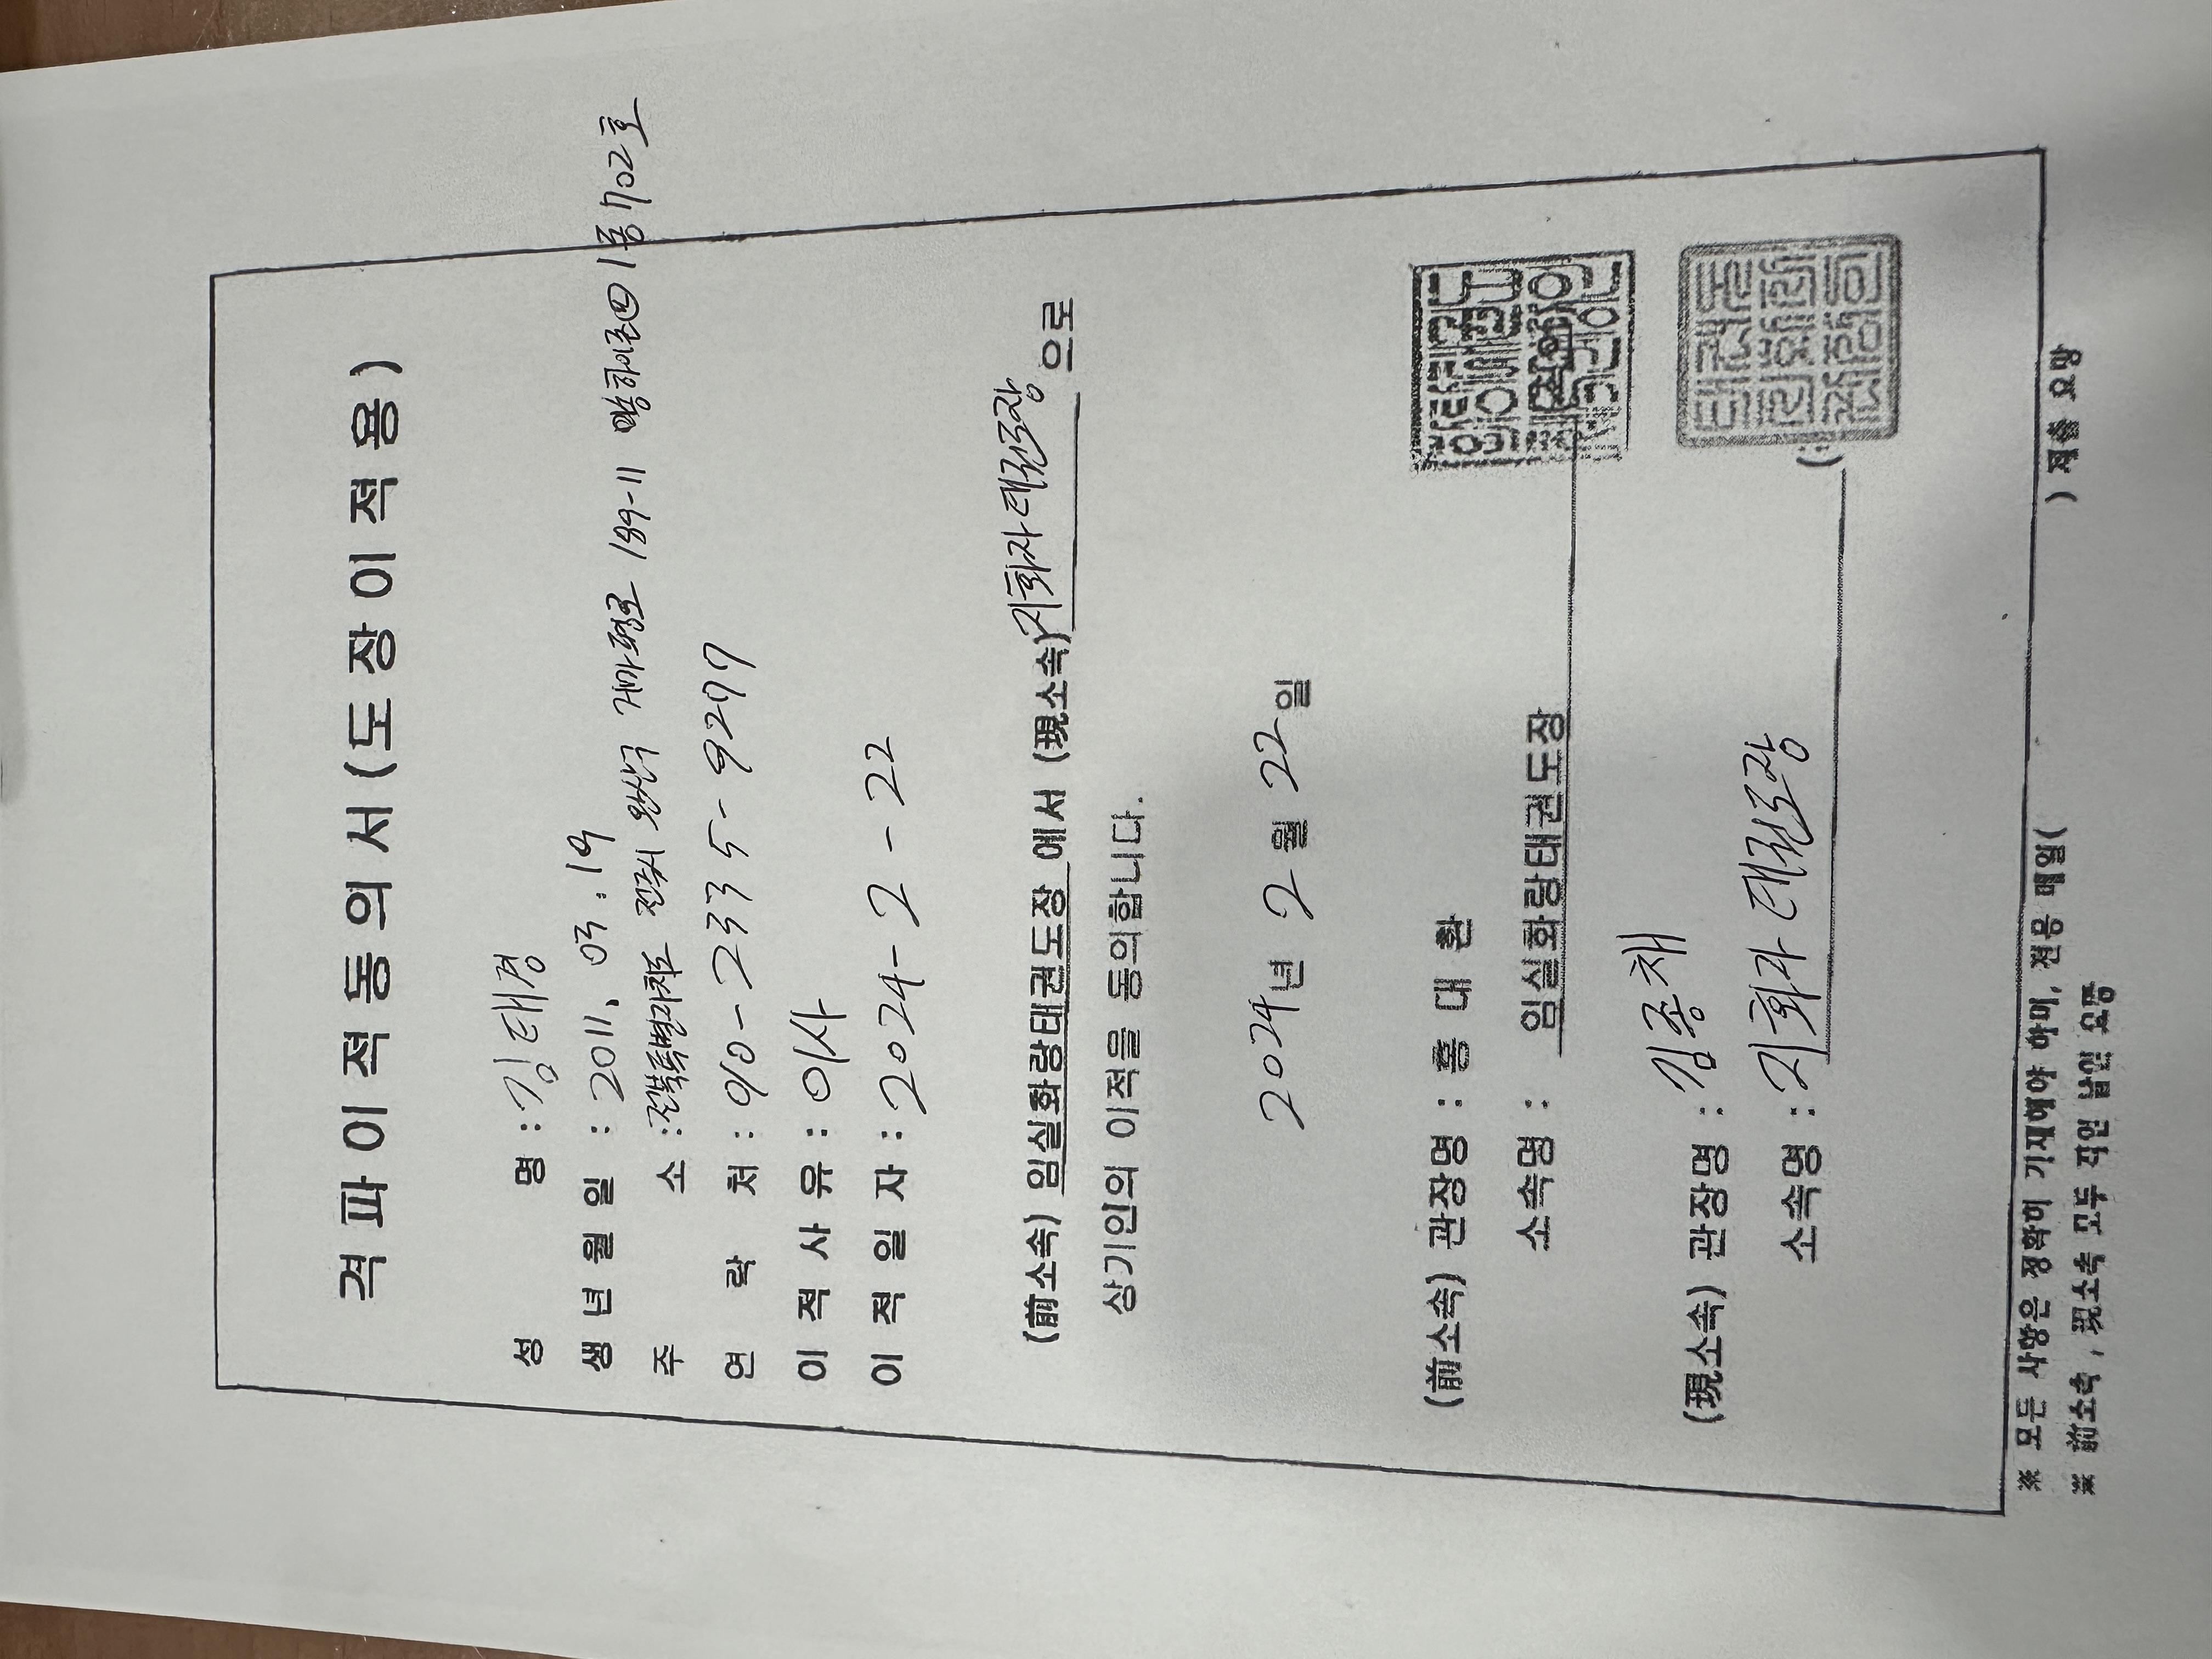 격파이적동의서(도장이적용)
성 명 : 김태경
생년월일 : 2011. 03. 19
주 소 : 전북특별자치도 전주시 완산구 거마평로 189-11 1동 702호
연 락 처 : 010-2335-9277
이적사유 : 이사
이적일자 : 2024-2-22
(前소속) 임실화랑태권도장 에서 (現소속) 지화자태권도장 으로
상기인의 이적을 동의합니다.
2024년 2월 22일
(前소속) 관장명 : 홍 대 환
소속명 : 임실화랑태권도장
(現소속) 관장명 : 김종채
소속명 : 지화자태권도장
※ 모든 사항은 정확히 기재해야 하며, 전용 메일( ) 제출 요망
※ 前소속, 現소속 모두 직인 날인 요망